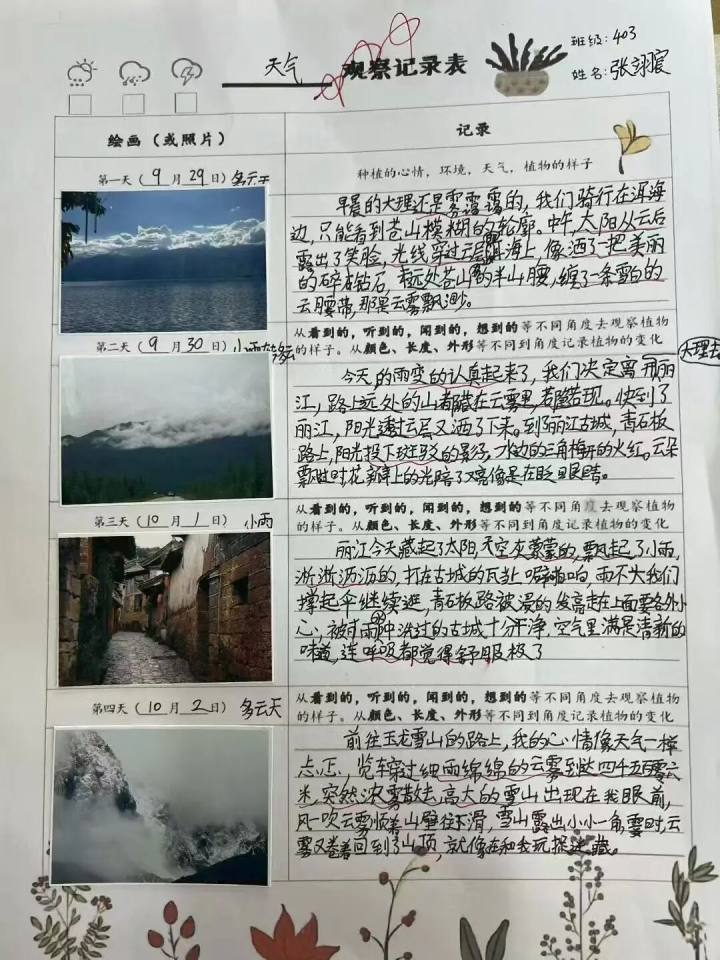 天气 观察记录表
班级：403
姓名：张翊宸
绘画（或照片）
记录
第一天（9月29日）多云
种植的心情，环境，天气，植物的样子
早晨的大理还是雾霭霭的，我们骑行在洱海
边，只能看到苍山模糊的轮廓。中午，太阳从云后
露出了笑脸，光线穿过云层 洱海上，像洒了一把美丽
的碎钻石，远处苍山的半山腰，缠了一条雪白的
云腰带，那是云雾飘渺。
从看到的，听到的，闻到的，想到的等不同角度去观察植物
的样子。从颜色、长度、外形等不同到角度记录植物的变化
第二天（9月30日）小雨转多云
大理去
今天的雨变的认真起来了，我们决定离开丽
江，路上远处的山都藏在云雾里，若隐若现。快到了
丽江，阳光透过云层又洒了下来。到了丽江古城，青石板
路上，阳光投下斑驳的影子，水边的三角梅开的火红。云朵
飘过时花瓣上的光暗了又亮像是在眨眼睛。
从看到的，听到的，闻到的，想到的等不同角度去观察植物
的样子。从颜色、长度、外形等不同到角度记录植物的变化
第三天（10月1日）小雨
丽江今天藏起了太阳，天空灰蒙蒙的，飘起了小雨，
淅淅沥沥的，打在古城的瓦当上 啪啪响，雨不大我们
撑起伞继续逛，青石板路被浸的发亮走在上面要格外小
心，被雨冲洗过的古城十分干净，空气里满是清新的
味道，连呼吸都觉得舒服极了
从看到的，听到的，闻到的，想到的等不同角度去观察植物
的样子。从颜色、长度、外形等不同到角度记录植物的变化
第四天（10月2日）多云天
前往玉龙雪山的路上，我的心情像天气一样
忐忑，览车穿过细雨绵绵的云雾到达四千五百零六
米，突然浓雾散去高大的雪山出现在我眼前，
风一吹云雾顺着山壁往下滑，雪山露出小小一角，霎时，云
雾又卷着回到了山顶，就像在和我玩捉迷藏。